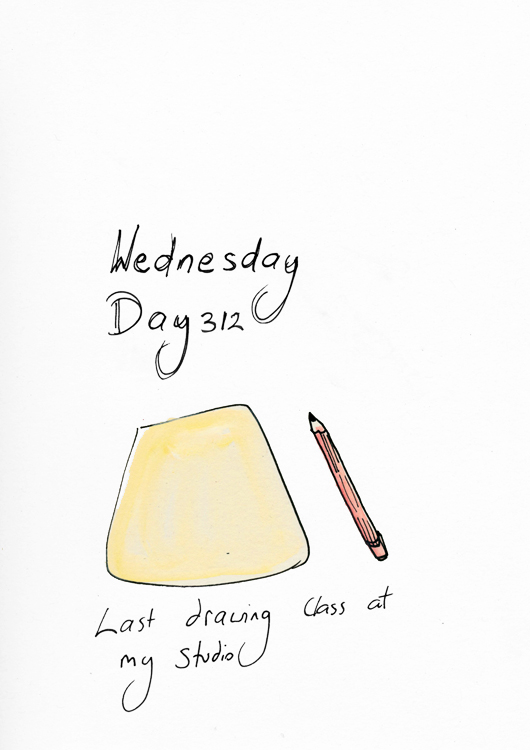 Wednesday
Day 312
Last drawing class at
my studio